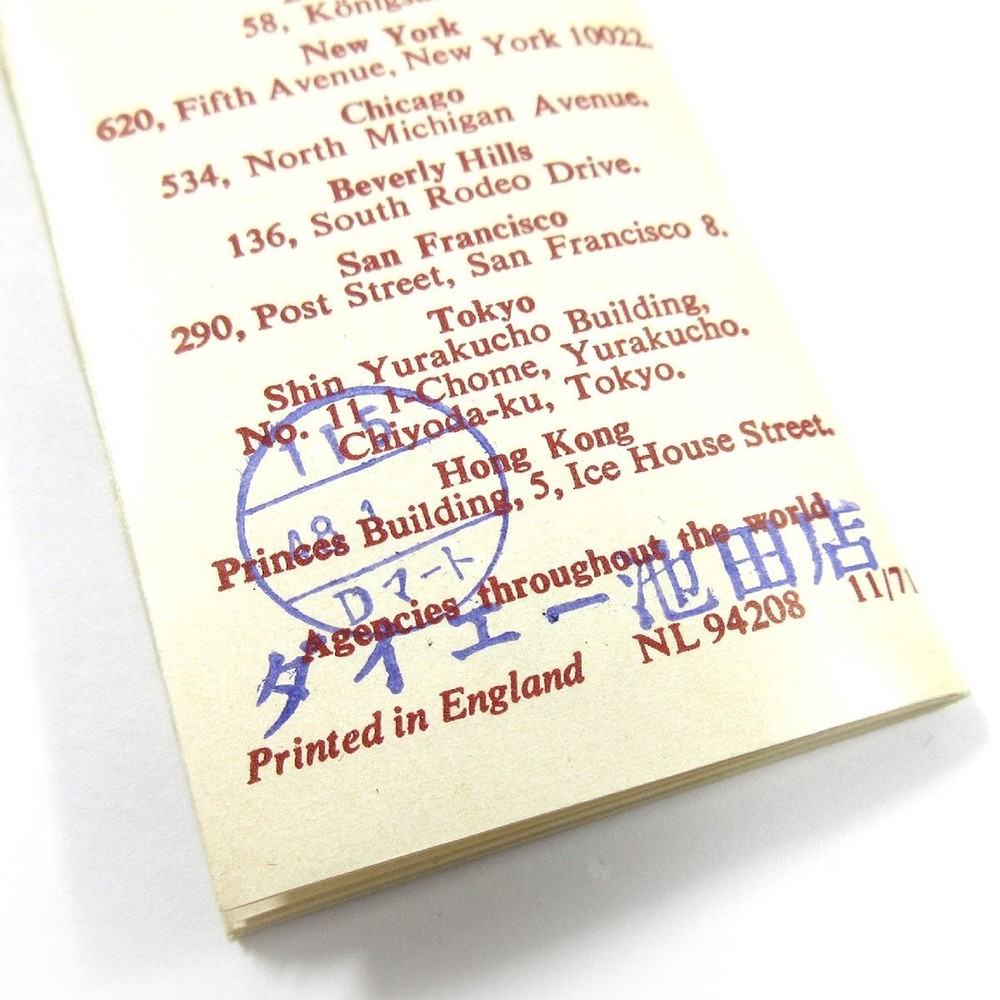 58,
New York
620, Fifth Avenue, New York 10022.
Chicago
534, North Michigan Avenue.
Beverly Hills
136, South Rodeo Drive.
San Francisco
290, Post Street, San Francisco 8.
Tokyo
Shin Yurakucho Building,
No. 11 1-Chome, Yurakucho.
Chiyoda-ku, Tokyo.
Hong Kong
Princes Building, 5, Ice House Street.
Agencies throughout the world
NL 94208 11/71
Printed in England
115
Dマート
ダイエー池田店